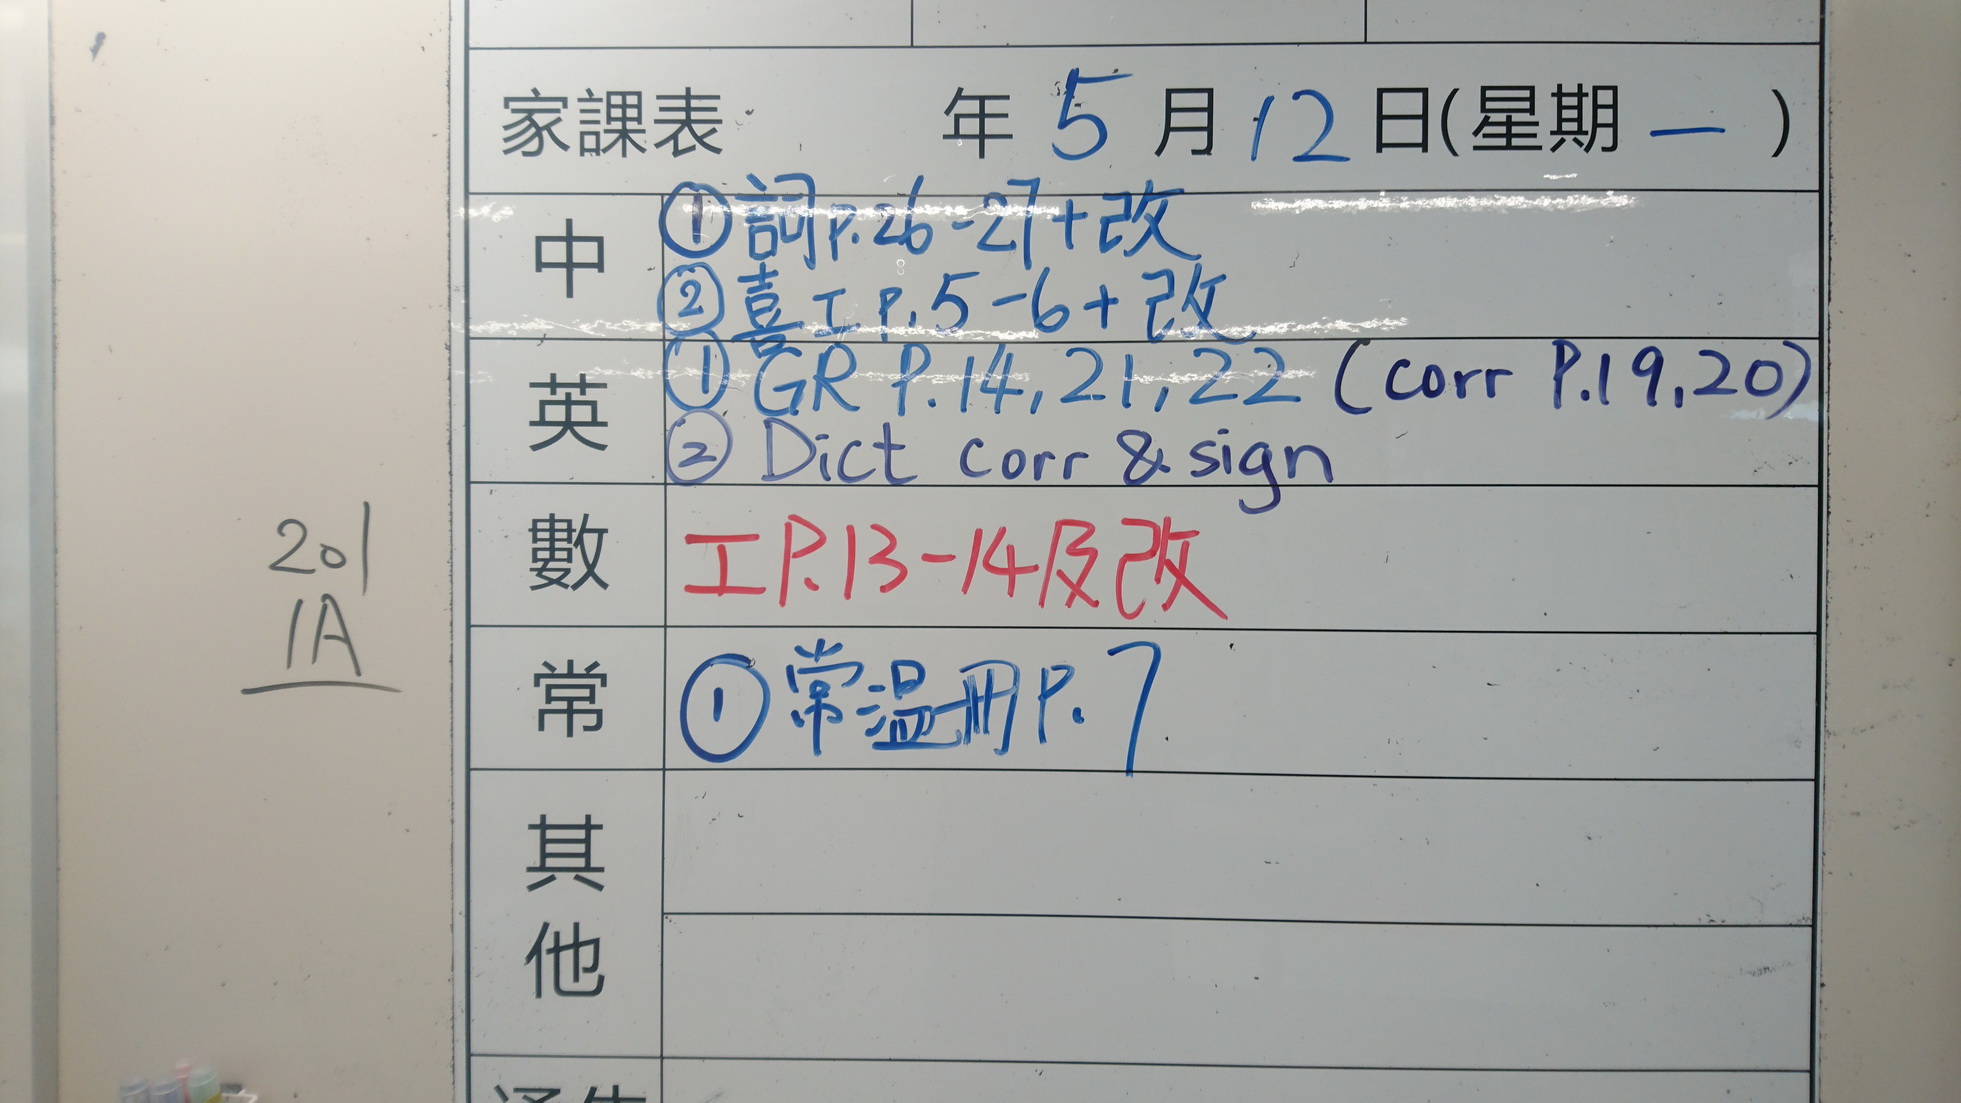 家課表 年 5 月 12 日(星期 一 )
中 ①詞P.26-27+改
②喜工P.5-6+改
英 ①GR P.14,21,22 (corr P.19,20)
② Dict corr & sign
數 工P.13-14及改
常 ①常温冊P.7
其他
201
1A